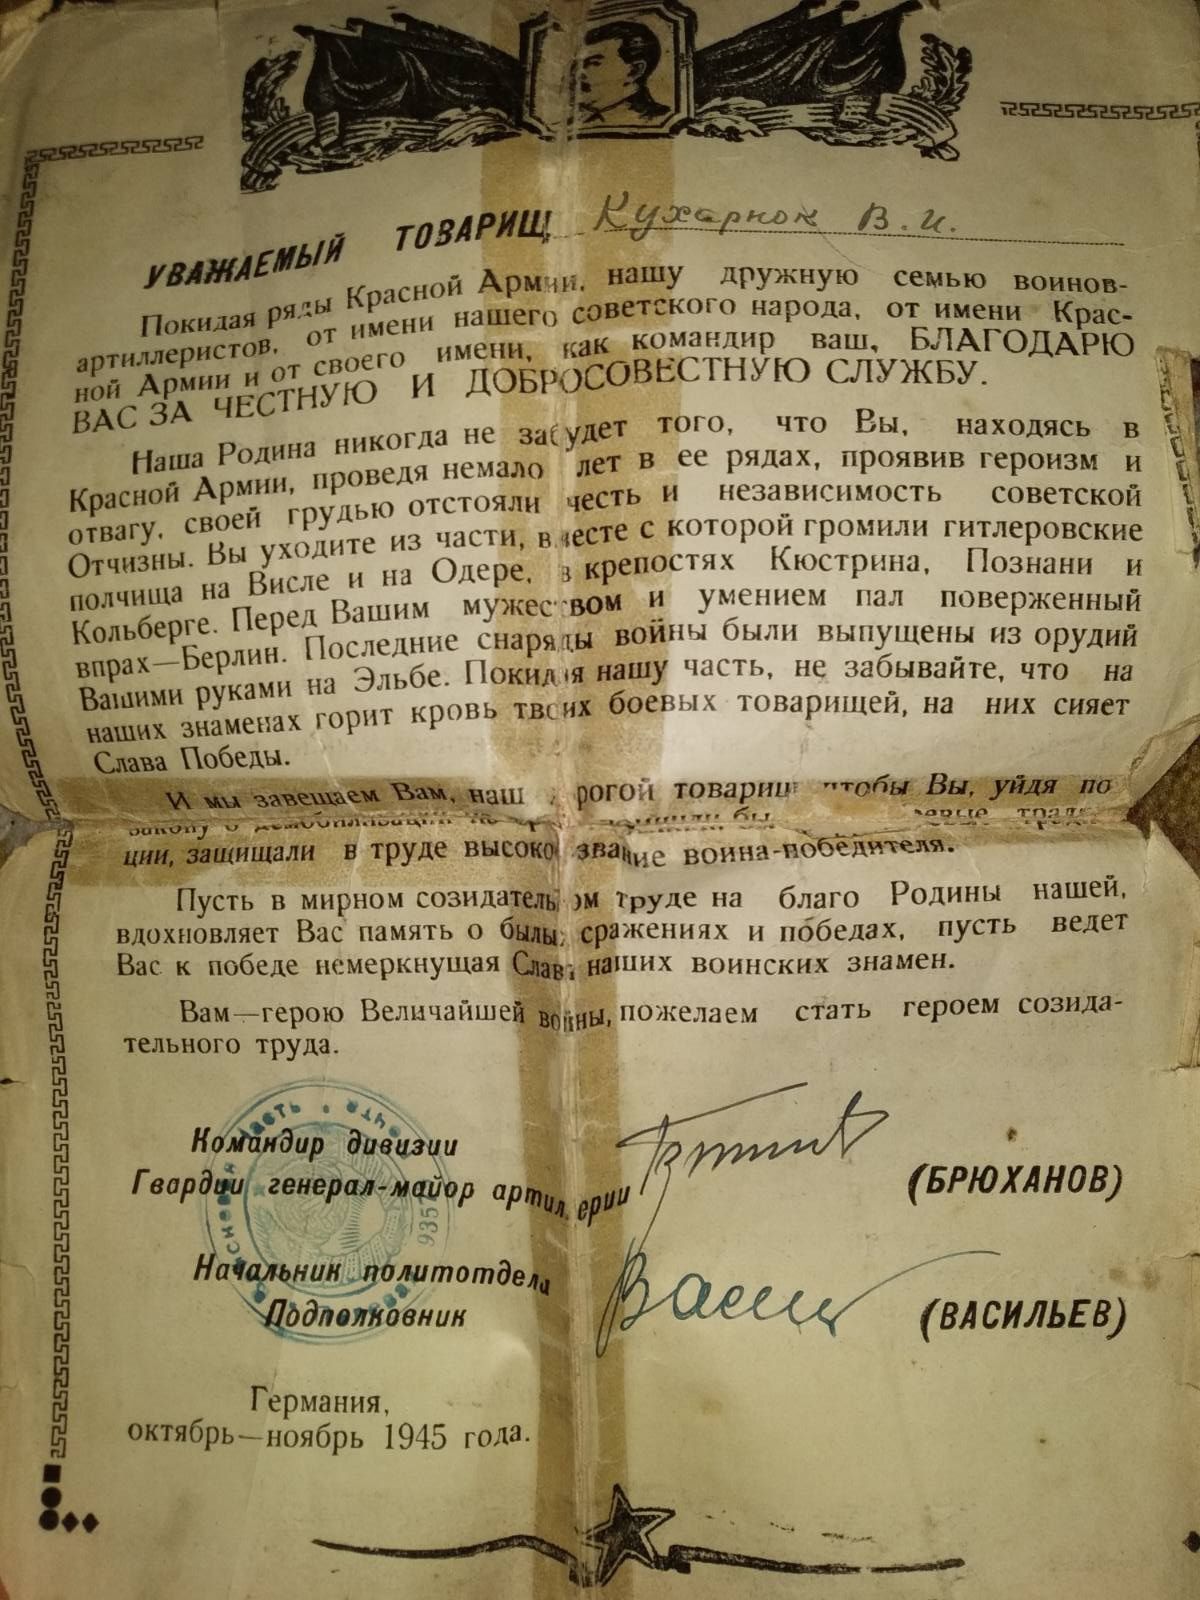 УВАЖАЕМЫЙ ТОВАРИЩ Кухарнок В.И.
Покидая ряды Красной Армии, нашу дружную семью воинов-
артиллеристов, от имени нашего советского народа, от имени Крас-
ной Армии и от своего имени, как командир ваш, БЛАГОДАРЮ
ВАС ЗА ЧЕСТНУЮ И ДОБРОСОВЕСТНУЮ СЛУЖБУ.
Наша Родина никогда не забудет того, что Вы, находясь в
Красной Армии, проведя немало лет в ее рядах, проявив героизм и
отвагу, своей грудью отстояли честь и независимость советской
Отчизны. Вы уходите из части, вместе с которой громили гитлеровские
полчища на Висле и на Одере, в крепостях Кюстрина, Познани и
Кольберге. Перед Вашим мужеством и умением пал поверженный
впрах—Берлин. Последние снаряды войны были выпущены из орудий
Вашими руками на Эльбе. Покидая нашу часть, не забывайте, что на
наших знаменах горит кровь твоих боевых товарищей, на них сияет
Слава Победы.
И мы завещаем Вам, наш дорогой товарищ чтобы Вы, уйдя по
закону о демобилизации
ции, защищали в труде высокое звание воина-победителя.
Пусть в мирном созидательном труде на благо Родины нашей,
вдохновляет Вас память о былых сражениях и победах, пусть ведет
Вас к победе немеркнущая Слава наших воинских знамен.
Вам—герою Величайшей войны, пожелаем стать героем созида-
тельного труда.
Командир дивизии
Гвардии генерал-майор артиллерии (БРЮХАНОВ)
Начальник политотдела
Подполковник Васил (ВАСИЛЬЕВ)
Германия,
октябрь—ноябрь 1945 года.